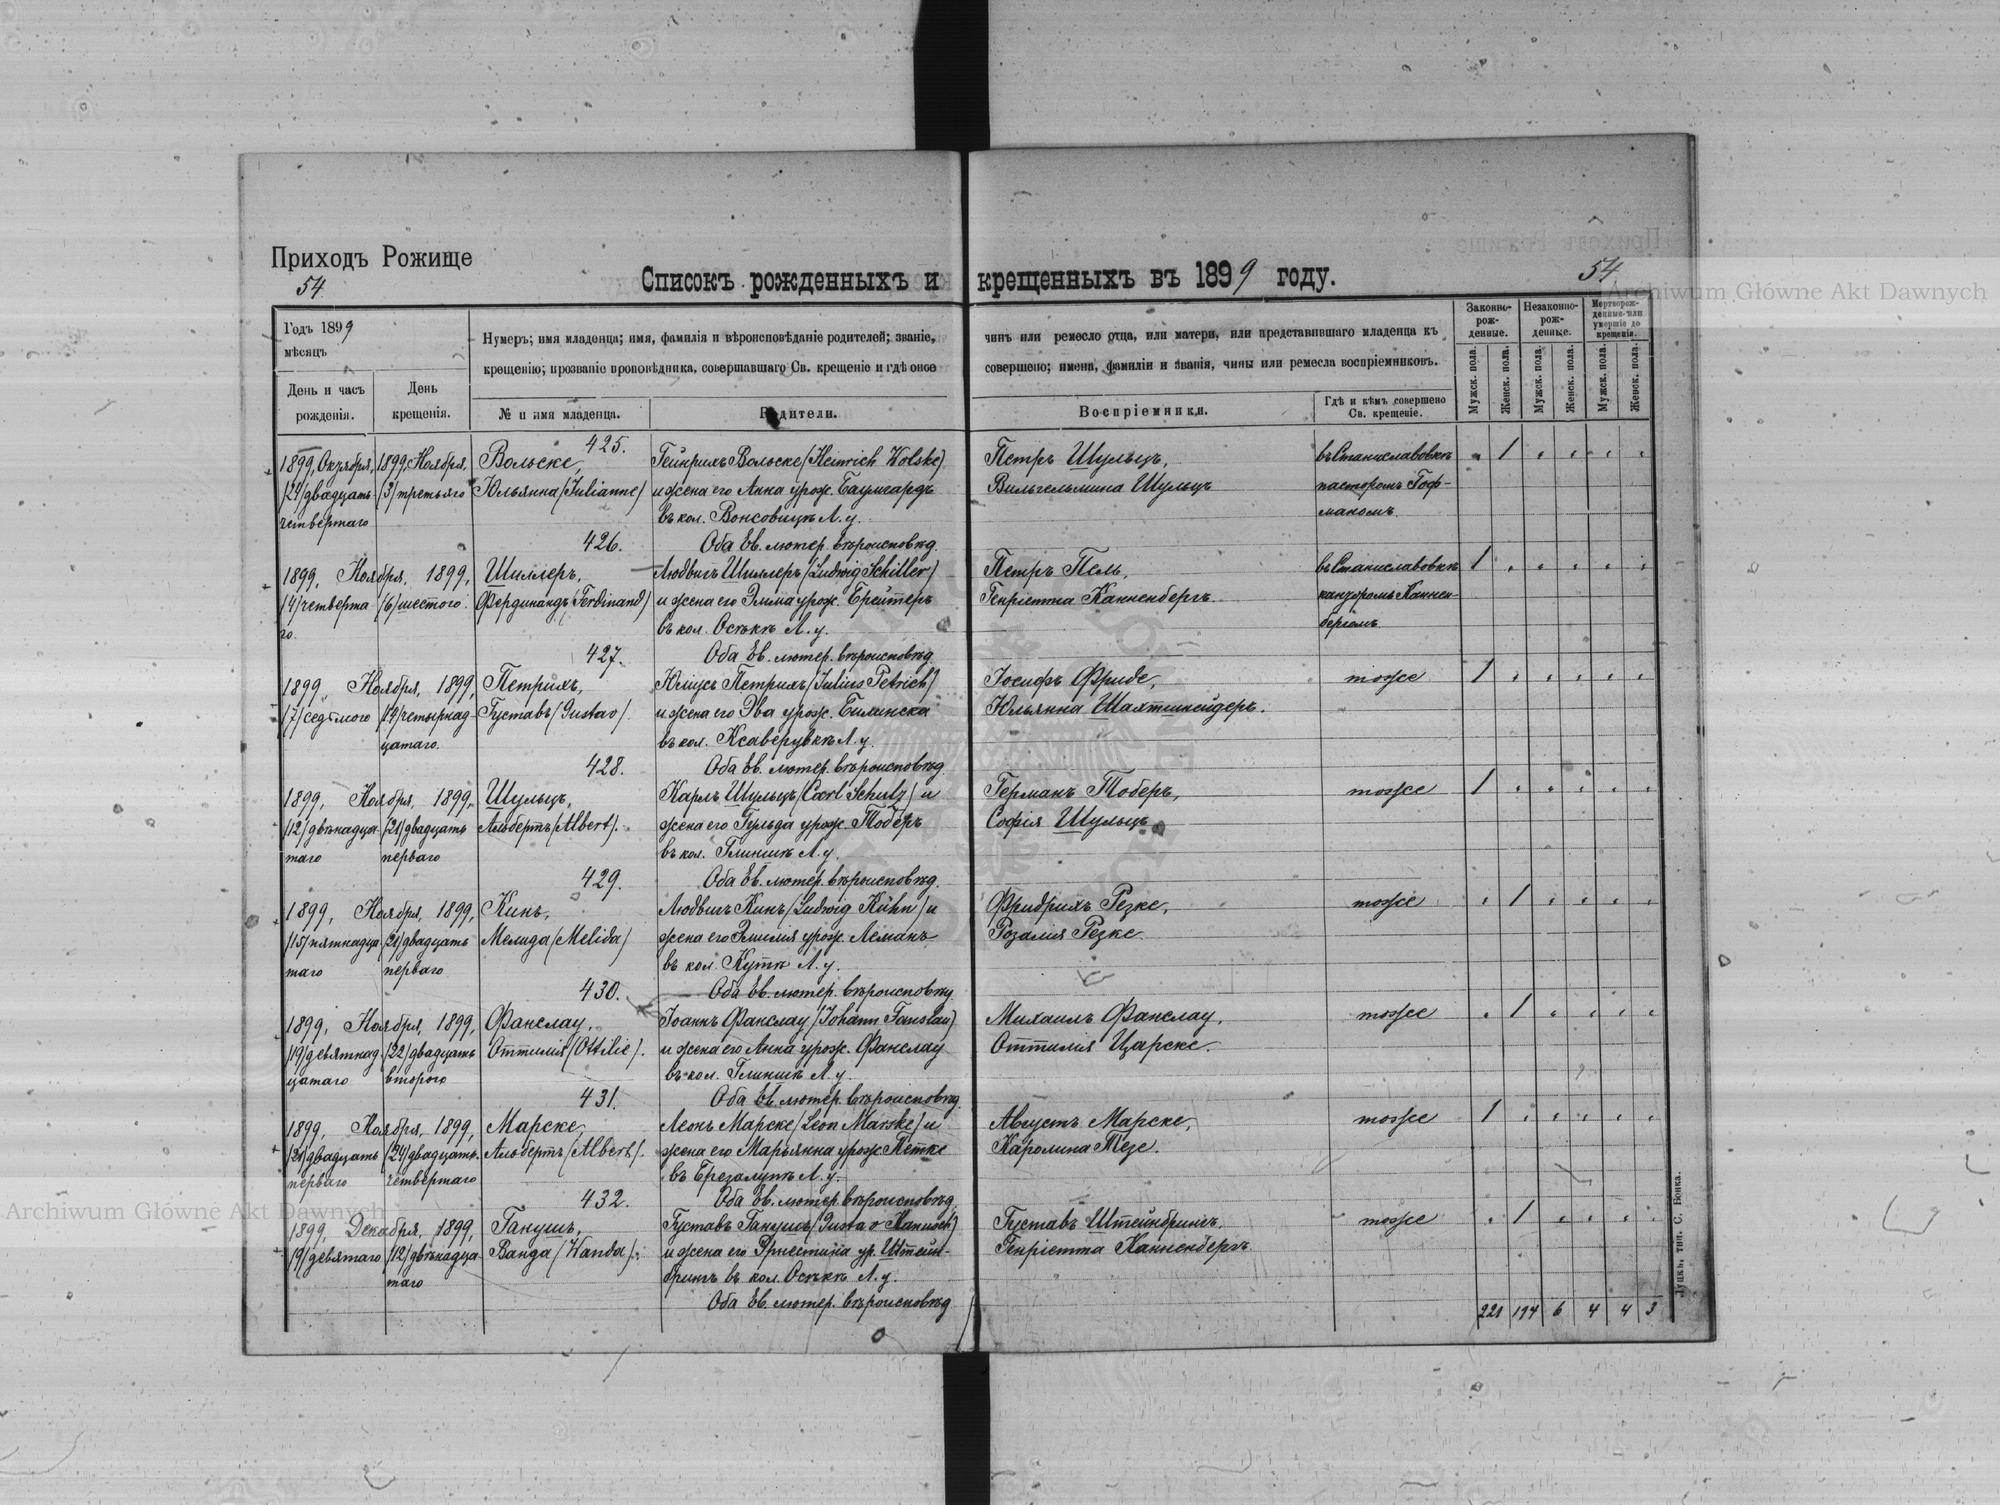 Приходъ Рожище
54
54
Списокъ рожденныхъ и крещенныхъ въ 1899 году.
Archiwum Główne Akt Dawnych
Годъ 1899
мѣсяцъ
День и часъ рожденія.
День крещенія.
Нумеръ; имя младенца; имя, фамилія и вѣроисповѣданіе родителей; званіе, чинъ или ремесло отца, или матери, или представившаго младенца къ
крещенію; прозваніе проповѣдника, совершавшаго Св. крещеніе и гдѣ оное совершено; имена, фамиліи и званія, чины или ремесла воспріемниковъ.
№ и имя младенца.
Родители.
Воспріемники.
Гдѣ и кѣмъ совершено Св. крещеніе.
Законно-рож-денные.
Незаконно-рож-денные.
Мертворож-денные или умершіе до крещенія.
Мужск. пола.
Женск. пола.
Мужск. пола.
Женск. пола.
Мужск. пола.
Женск. пола.
425.
1899, Октября, 1899, Ноября, Вольске, Гейнрихъ Вольске (Heinrich Wolske) Петръ Шульцъ, въ Станиславовкѣ . 1 . . . .
(24) двадцать (3) третьяго Юльянна (Julianne) и жена его Анна урож. Баумгардъ Вильгельмина Шульцъ пасторомъ Гоф-
четвертаго въ кол. Вонсовичѣ Л. у. маномъ.
426. Оба Ев. лютер. вѣроисповѣд.
1899, Ноября, 1899, Шиллеръ, Людвигъ Шиллеръ (Ludwig Schiller) Петръ Пель, въ Станиславовкѣ 1 . . . . .
(4) четверта (6) шестого Фердинандъ (Ferdinand) и жена его Эмма урож. Брейтеръ Генріетта Канненбергъ. канторомъ Каннен-
го. въ кол. Осѣкѣ Л. у. бергомъ
427. Оба Ев. лютер. вѣроисповѣд.
1899, Ноября, 1899, Петрихъ, Юліусъ Петрихъ (Julius Petrich) Іосифъ Фриде, тоже 1 . . . . .
(7) седьмого (14) четырнад- Густавъ (Gustav). и жена его Эва урож. Билинска Юльянна Шахтшнейдеръ.
цатаго. въ кол. Ксаверувкѣ Л. у.
428. Оба Ев. лютер. вѣроисповѣд.
1899, Ноября, 1899, Шульцъ, Карлъ Шульцъ (Carl Schulz) и Германъ Тоберъ, тоже 1 . . . . .
(12) двѣнадца- (21) двадцать Альбертъ (Albert). жена его Гульда урож. Тоберъ Софія Шульцъ
таго перваго въ кол. Глиникѣ Л. у.
429. Оба Ев. лютер. вѣроисповѣд.
1899, Ноября, 1899, Кинъ, Людвигъ Кинъ (Ludwig Kühn) и Фридрихъ Резке, тоже . 1 . . . .
(15) пятнадца- (21) двадцать Мелида (Melida) жена его Эмилія урож. Леманъ Розалия Резке.
таго перваго въ кол. Кутѣ Л. у.
430. Оба Ев. лютер. вѣроисповѣд.
1899, Ноября, 1899, Фанслау, Іоаннъ Фанслау (Johann Fanslau) Михаилъ Фанслау, тоже . 1 . . . .
(19) девятнад- (22) двадцать Оттилія (Ottilie). и жена его Анна урож. Фанслау Оттилія Царске.
цатаго второго въ кол. Глиникѣ Л. у.
431. Оба Ев. лютер. вѣроисповѣд.
1899, Ноября, 1899, Марске, Леонъ Марске (Leon Marske) и Августъ Марске, тоже 1 . . . . .
(21) двадцать (24) двадцать Альбертъ (Albert). жена его Марьянна урож. Петке Каролина Тезе.
перваго четвертаго въ Брезалукѣ Л. у.
432. Оба Ев. лютер. вѣроисповѣд.
1899, Декабря, 1899, Ганушъ, Густавъ Ганушъ (Gustav Hannsch) Густавъ Штейнбринкъ, тоже . 1 . . . .
(9) девятаго (12) двѣнадца- Ванда (Wanda). и жена его Эрнестина ур. Штейн- Генріетта Канненбергъ.
таго бринкъ въ кол. Осѣкѣ Л. у.
Оба Ев. лютер. вѣроисповѣд
221 194 6 4 4 3
Луцкъ, тип. С. Бонка.
Archiwum Główne Akt Dawnych